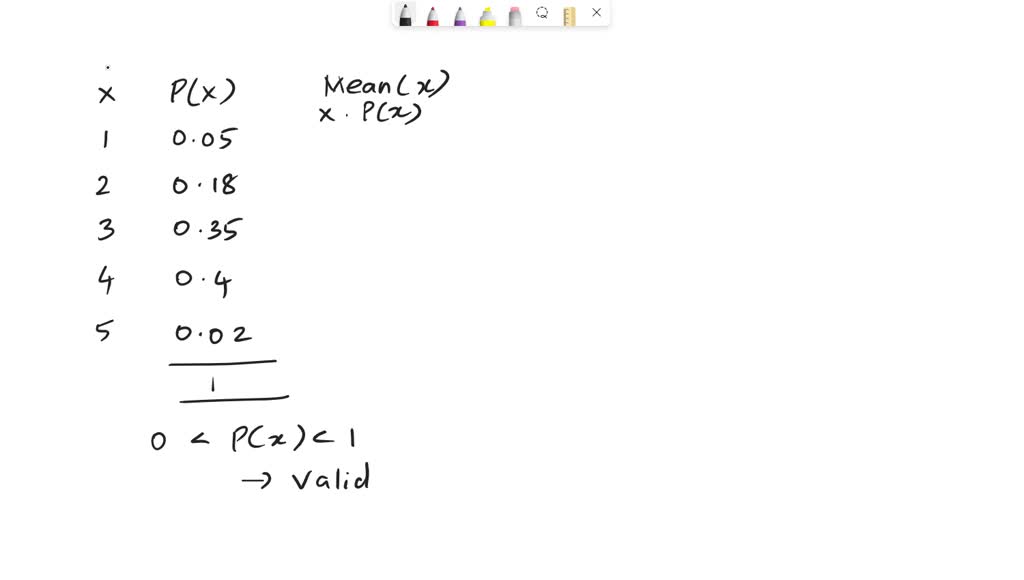 x P(x) Mean(x)
x . P(x)
1 0.05
2 0.18
3 0.35
4 0.4
5 0.02
1
0 < P(x) < 1
→ valid